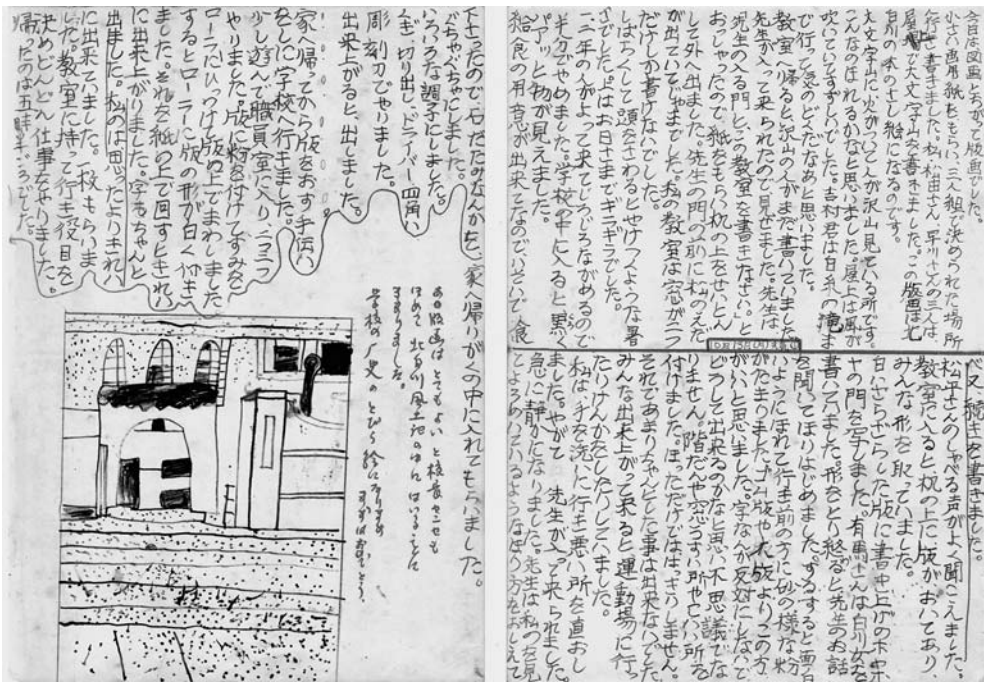 今日は図画とちがって版画でした。
小さい画用紙をもらい、三人組で決められた場所へ
行き書きました。私、松田さん、早川さんの三人は、
屋上で大文字山を書きました。この版画は北
白川の本のさし絵になるのです。
大文字山に火がついて人が沢山見ている所です。
こんなのほれるかなと思いました。屋上は風が
吹いていてすずしいでした。吉村君は白糸の滝ま
で行って気のどくだなあと思いました。
教室へ帰ると沢山の人がまだ書いていました。
先生が入って来られたので見せました。先生は、
「先生の入る門と、この教室を書きなさい。」と
おっしゃたので、紙をもらい机の上をせいとん
して外へ出ました。先生の門の前に松のえだ
が出ていてじゃまでした。私の教室は窓が二つ
だけしか書けないでした。
しばらくして頭をさわるとやけつくような暑
さでした。上はお日さまでギラギラでした。
二、三年の人がよって来てじろじろながめるので
半分でやめました。学校の中に入ると黒く
パアッと物が見えました。
給食の用意が出来てなのでいそいで食
べ又続きを書きました。
松平さんのしゃべる声がよく聞こえました。
教室に入ると机の上に版がおいてあり、
みんな形を取っていました。
白いさらさらした版に書き上げのホヤホ
ヤの門を写しました。有馬さんは白川女を
書いていました。形をとり終ると先生のお話
を聞いてほりはじめました。するすると面白
いようにほれて行き前の方に砂の様な粉
がたまりました。ゴム版や木版よりこの方
がいいと思いました。字なんか反対にしないで
どうして出来るのかなと思い不思議でな
りません。階だんや窓のすい所やこい所を
付けました。ほっただけではハッキリしません。
それであまりちゃんとした事は出来ないでした。
みんな出来上がって来ると運動場に行っ
たりけんかをしたりしていました。
私は、手を洗いに行き悪い所を直しし
ました。やがて先生が入って来られました。
急に静かになりました。先生は私のを見
てよろめいているようなほり方をおしえて
下さったので石だたみなんかを
ぐちゃぐちゃにしました。
いろいろな調子にしました。
くぎ、切り出し、ドライバー、四角い
彫刻刀でやりました。
出来上がると、出しました。
家へ帰りがくの中に入れてもらいました。
家へ帰ってから版をおす手伝い
をしに学校へ行きました。
少し遊んで職員室に入り、二、三つ
やりました。版に粉を付けてすみを
ローラにひっつけて版の上でまわしました
するとローラーに版の形が白く付き
ました。それを紙の上で回すとキレイ
に出来上がりました。字もちゃんと
出ました。私のは思ったよりきれい
に出来ていました。一枚もらいま
した。教室に持って行き役目を
決めどんどん仕事をやりました。
帰ったのは五時半ごろでした。
あの版画はとてもよいと校長先生も
ほめて、北白川風土記の中にはいることに
きまりました。
学校の歴史のとびら絵になります。